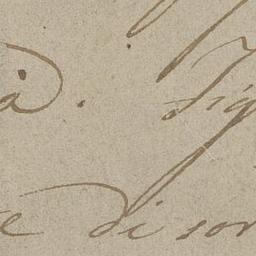 à. Sig
e di sor